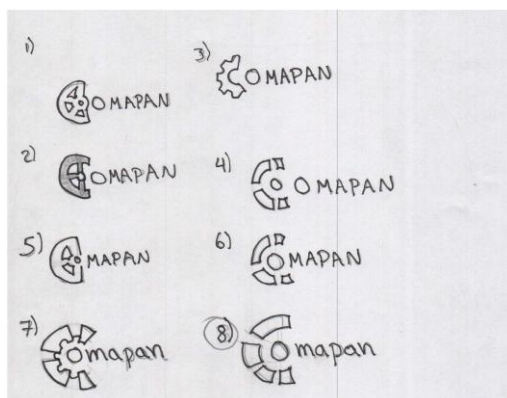 1) OMAPAN
3) OMAPAN
2) OMAPAN
4) OMAPAN
5) MAPAN
6) OMAPAN
7) Omapan
8) Omapan